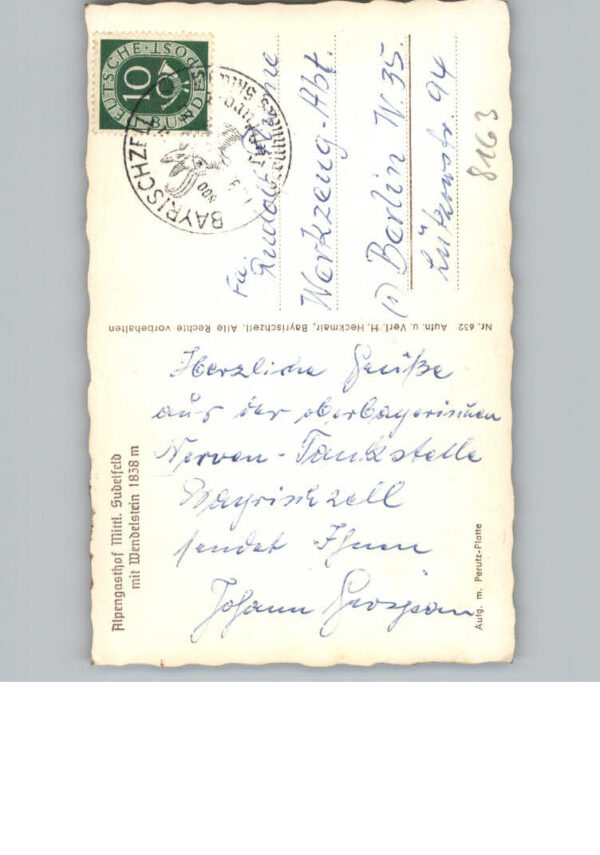 DEUTSCHE BUNDESPOST
10
BAYRISCHZELL
800
Fa.
Rudolf
Werkzeug-Abt.
(1) Berlin W. 35.
Lützowstr. 94
8163
Nr. 632 Aufn. u. Verl. H. Heckmair, Bayrischzell. Alle Rechte vorbehalten
Herzliche Grüße
aus der oberbayerischen
Nerven-Tankstelle
Bayrischzell
sendet Ihnen
Johann
Alpengasthof Mittl. Sudelfeld
mit Wendelstein 1838 m
Aufg. m. Perutz-Platte